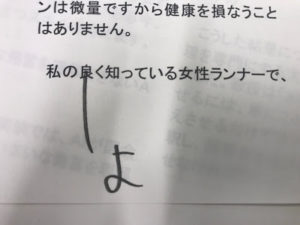 ンは微量ですから健康を損なうこと
はありません。
私の良く知っている女性ランナーで、
よ